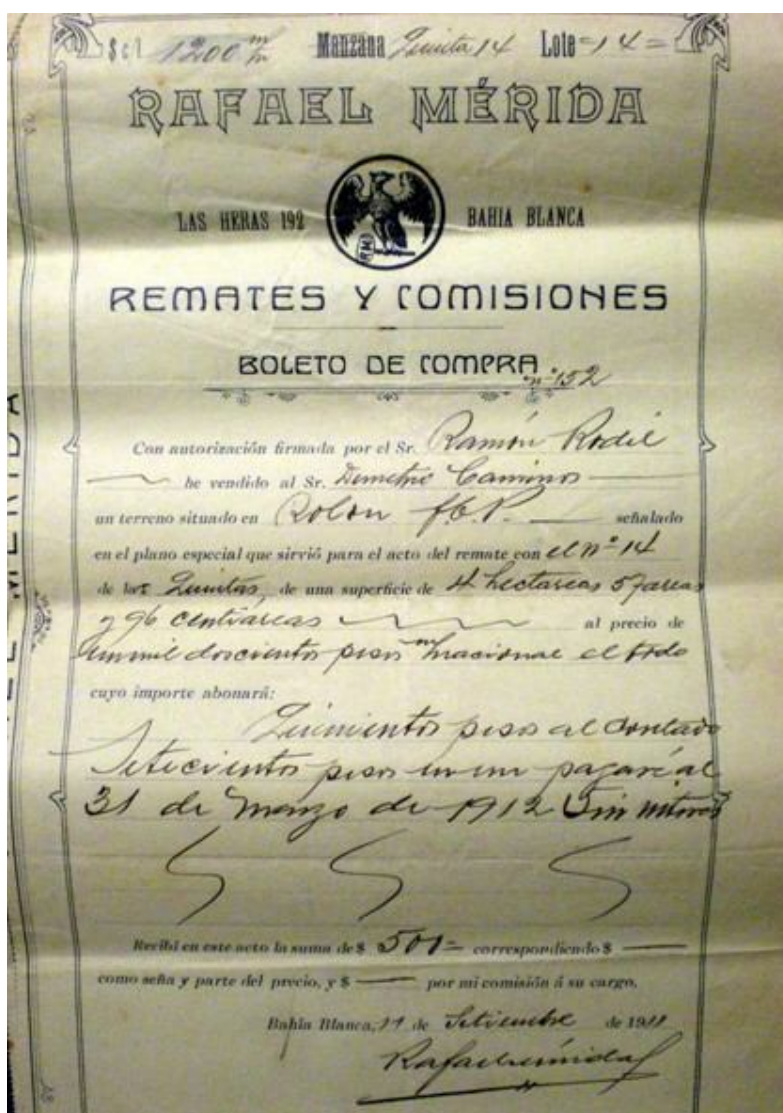 $ c/l 1200 m/n Manzana Quinta 14 Lote = 14 =
RAFAEL MÉRIDA
LAS HERAS 192 BAHIA BLANCA
RM
REMATES Y COMISIONES
BOLETO DE COMPRA nº 152
Con autorización firmada por el Sr. Ramón Rodil
he vendido al Sr. Demetrio Caminos
un terreno situado en Rolon f.C.P. señalado
en el plano especial que sirvió para el acto del remate con el nº 14
de las Quintas, de una superficie de 4 hectareas 57 areas
y 96 centiáreas al precio de
un mil doscientos pesos m/nacional el todo
cuyo importe abonará:
Quinientos pesos al contado
Setecientos pesos en un pagaré al
31 de Marzo de 1912 Sin
Recibí en este acto la suma de $ 500= correspondiendo $
como seña y parte del precio, y $ por mi comisión á su cargo.
Bahía Blanca, 11 de Setiembre de 1911
Rafael Mérida